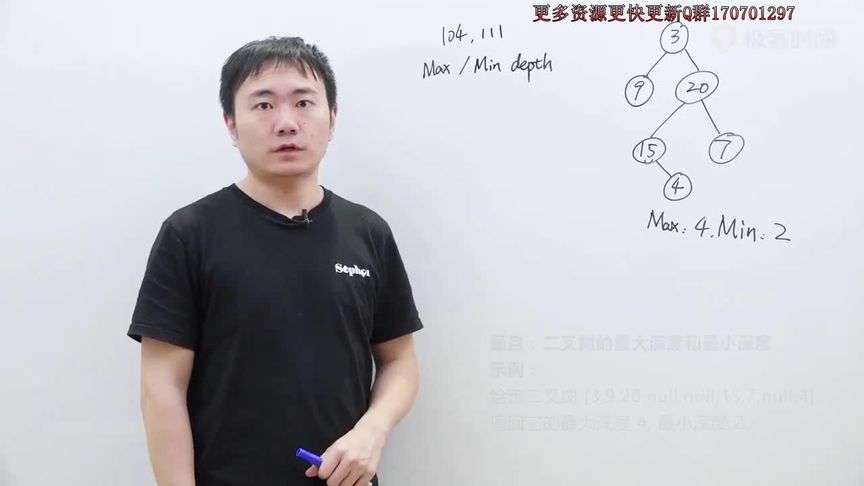 更多资源更快更新Q群170701297
极客时间
104, 111
Max / Min depth
3
9
20
15
7
4
Max: 4. Min: 2
Sephor
题目：二叉树的最大深度和最小深度
示例：
给定二叉树 [3,9,20,null,null,15,7,null,4],
返回它的最大深度 4, 最小深度 2.